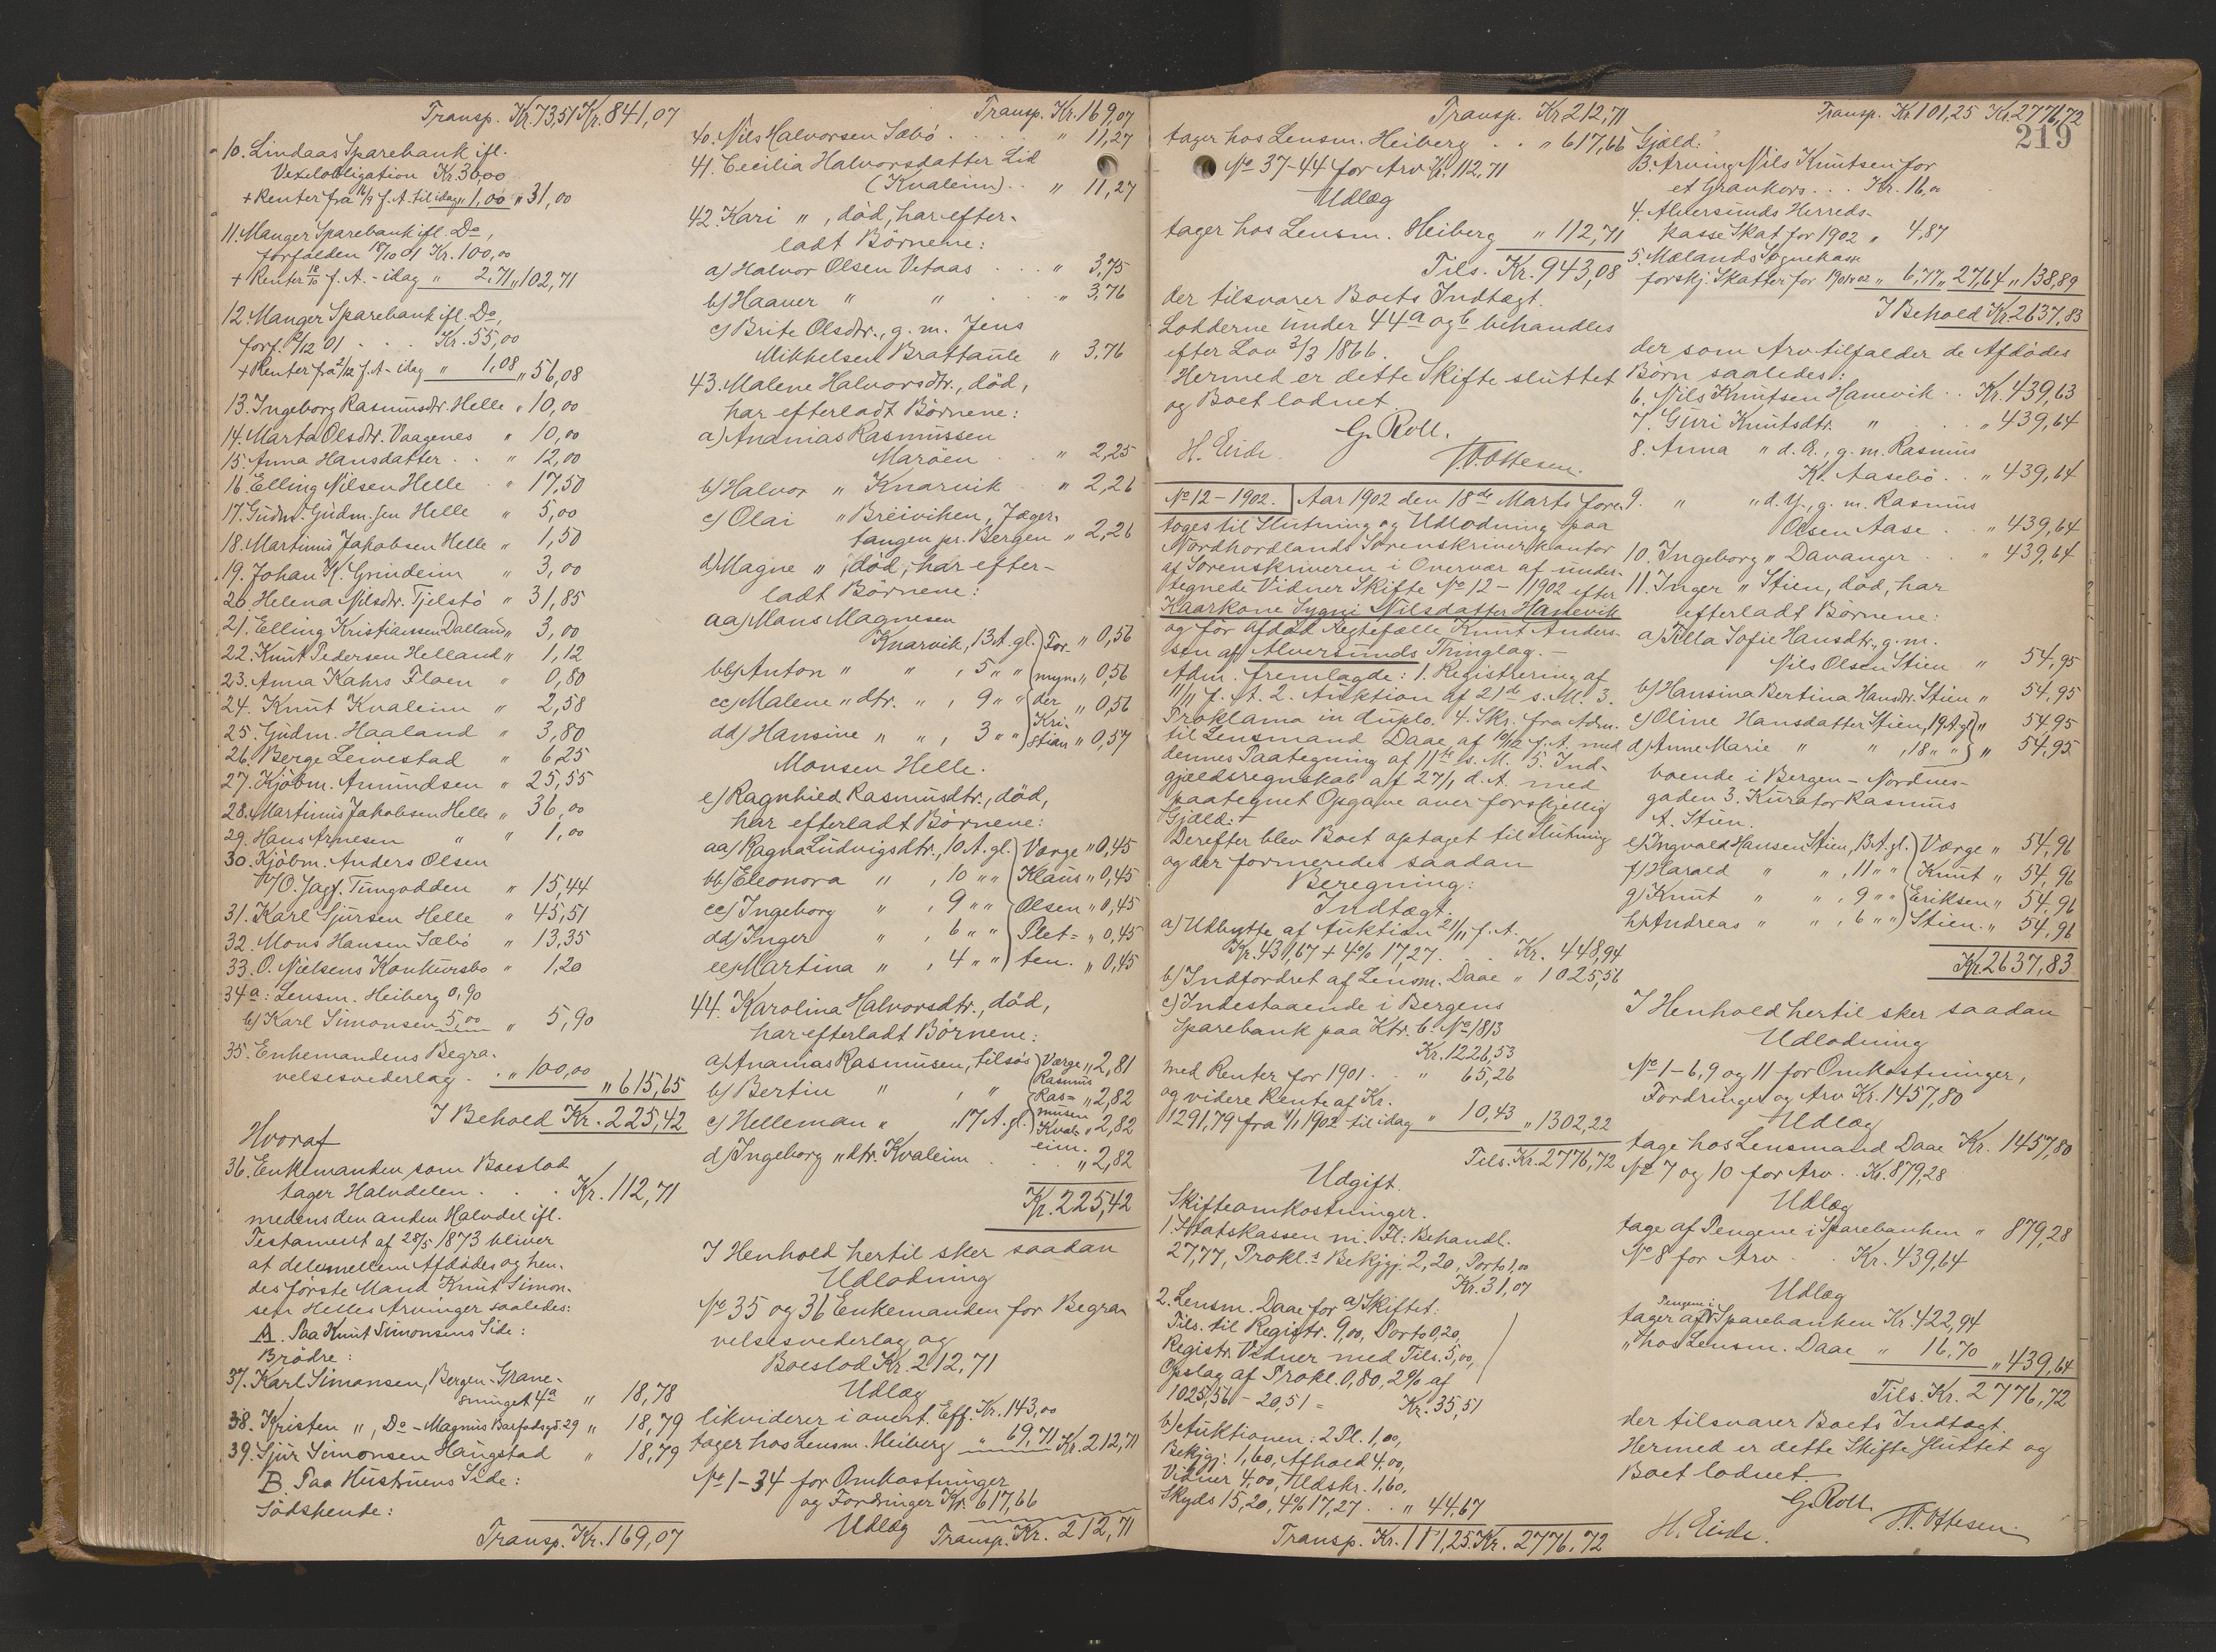 Transp. Kr. 73,51 Kr. 841,07
10. Lindaas Sparebank ifl.
Vexelobligation Kr. 30,00
+ Renter fra 16/9 f. A. til idag " 1,00 " 31,00
11. Manger Sparebank ifl. Do,
forfalden 18/10 01 Kr. 100,00
+ Renter 18/10 f. A. - idag " 2,71 " 102,71
12. Manger Sparebank ifl. Do,
forf. 2/12 01 . . . Kr. 55,00
+ Renter fra 2/12 f. A. - idag " 1,08 " 56,08
13. Ingeborg Rasmusdtr. Helle " 10,00
14. Marta Olsdtr. Vaagenes " 10,00
15. Anna Hansdatter . . " 12,00
16. Elling Nilsen Helle " 17,50
17. Gudm. Gudm.sen Helle " 5,00
18. Martinus Jakobsen Helle " 1,50
19. Johan K. Grindeim " 3,00
20. Helena Nilsdtr. Tjelstö " 31,85
21. Elling Kristianssen Dalland " 3,00
22. Knut Pedersen Helland " 1,12
23. Anna Kahrs Floen " 0,80
24. Knut Kvaleim " 2,58
25. Gudm. Haaland " 3,80
26. Berge Leivestad " 6,25
27. Kjöbm. Amundsen " 25,55
28. Martinus Jakobsen Helle " 36,00
29. Hans Arnesen " " 1,00
30. Kjöbm. Anders Olsen
v/ O. Jagf. Tungodden " 15,44
31. Karl Sjursen Helle " 45,51
32. Mons Hansen Sæbö " 13,35
33. O. Nielsens Konkursbo " 1,20
34 a: Lensm. Heiberg 0,90
b) Karl Simonsen 5,00 " 5,90
35. Enkemandens Begra-
velsesvederlag . . " 100,00 " 615,65
I Behold Kr. 225,42
Hvoraf
36. Enkemanden som Boeslod
tager Halvdelen . . . Kr. 112,71
medens den anden Halvdel ifl.
Testament af 28/5 1873 bliver
at dele mellem Afdödes og hen-
des förste Mand Knut Simon-
sen Helles Arvinger saaledes:
A. Paa Knut Simonsens Side:
Brödre:
37. Karl Simonsen, Bergen-Grane-
smuget 4a " 18,78
38. Kristen ", Do - Magnus Barfodsgd. 29 " 18,79
39. Sjur Simonsen Haugstad " 18,79
B. Paa Hustruens Side:
Södskende:
Transp. Kr. 169,07
Transp. Kr. 169,07
40. Nils Halvorsen Sæbö . . . . " 11,27
41. Cecilia Halvorsdatter Lid
(Kvaleim) . . " 11,27
42. Kari ", död, har efter-
ladt Börnene:
a) Halvor Olsen Vetaas . . . " 3,75
b) Haaver " " . . . " 3,76
c) Brite Olsdtr., g. m. Jens
Mikkelsen Brattaule " 3,76
43. Malene Halvorsdtr., död,
har efterladt Börnene:
a) Ananias Rasmussen
Maröen . . " 2,25
b) Halvor " Knarvik . " 2,26
c) Olai " Breiviken, Jæger-
tangen pr. Bergen " 2,26
d) Magne ", död, har efter-
ladt Börnene:
aa) Mons Magnesen
Knarvik, 13 A. gl. } For- " 0,56
bb) Anton " " , 5 " " myn- " 0,56
cc) Malene " dtr. " , 9 " " der " 0,56
dd) Hansine " " , 3 " " Kri-stian " 0,57
Monsen Helle.
e) Ragnhild Rasmusdtr., död,
har efterladt Börnene:
aa) Ragna Ludvigsdtr., 10 A. gl. } Værge " 0,45
bb) Eleonora " , 10 " " Klaus " 0,45
cc) Ingeborg " , 9 " " Olsen " 0,45
dd) Inger " , 6 " " Plet= " 0,45
ee) Martina " , 4 " " ten. " 0,45
44. Karolina Halvorsdtr., död,
har efterladt Börnene:
a) Ananias Rasmusen, tilsös } Værge " 2,81
b) Bertin " , " Rasmus Ras= " 2,82
c) Helleman " , 17 A. gl. musen Kval- " 2,82
d) Ingeborg " dtr. Kvaleim eim. " 2,82
Kr. 225,42
I Henhold hertil sker saadan
Udlodning
No 35 og 36 Enkemanden for Begra-
velsesvederlag og
Boeslod Kr. 212,71
Udlæg
likviderer i overt. Eff. Kr. 143,00
tager hos Lensm. Heiberg " 69,71 Kr. 212,71
No 1-34 for Omkostninger
og Fordringer Kr. 617,66
Udlæg
Transp. Kr. 212,71
Transp. Kr. 212,71
tager hos Lensm. Heiberg . . " 617,66
No 37-44 for Arv Kr. 112,71
Udlæg
tager hos Lensm. Heiberg " 112,71
Tils. Kr. 943,08
der tilsvarer Boets Indtægt.
Lodderne under 44 a og b behandles
efter Lov 3/3 1866.
Hermed er dette Skifte sluttet
og Boet lodnet.
G. Roll.
H. Eide. V. Ottesen.
No 12 - 1902. Aar 1902 den 18de Marts fore-
toges til Slutning og Udlodning paa
Nordhordlands Sorenskriverkontor
af Sorenskriveren i Overvær af under-
tegnede Vidner Skifte No 12 - 1902 efter
Kaarkone Sygni Nilsdatter Hanevik
og för afdöd Ægtefælle Knut Anders-
sen af Alversunds Thinglag. -
Adm. fremlagde: 1. Registrering af
11/11 f. A. 2. Auktion af 21de s. M. 3.
Proklama in duplo. 4. Skr. fra Adm.
til Lensmand Daae af 10/12 f. A. med
dennes Paategning af 11te s. M. 5. Ind-
gjældsregnskab af 27/1 d. A. med
paategnet Opgave over forskjellig
Gjæld. -
Derefter blev Boet optaget til Slutning
og der formeredes saadan
Beregning:
Indtægt.
a) Udbytte af Auktion 21/11 f. A.
Kr. 431,67 + 4% 17,27 . . . Kr. 448,94
b) Indfordret af Lensm. Daae " 1025,56
c) Indestaaende i Bergens
Sparebank paa Ktr. b. No 1813
Kr. 1226,53
med Renter for 1901 . . " 65,26
og videre Rente af Kr.
1291,79 fra 1/1 1902 til idag " 10,43 " 1302,22
Tils. Kr. 2776,72
Udgift.
Skifteomkostninger.
1. Statskassen m. Fl: Behandl.
27,77, Prokl.s Bekjgj. 2,20, Porto 1,00
Kr. 31,07
2. Lensm. Daae for a) Skiftet:
Tils. til Registr. 9,00, Porto 0,20,
Registr. Vidner med Tils. 5,00,
Opslag af Prokl. 0,80, 2% af
1025,56 - 20,51 = Kr. 35,51
b) Auktionen: 2 Pl. 1,00,
Bekjgj. 1,60, Afhold 4,00,
Vidner 4,00, Udskr. 1,60,
Skyds 15,20, 4% 17,27 . . " 44,67
Transp. Kr. 111,25 Kr. 2776,72
Transp. Kr. 101,25 Kr. 2776,72
219
Gjæld:
3. Arving Nils Knutsen for
et Gravkors . . . Kr. 11,00
4. Alversunds Herreds-
kasse Skat for 1902 " 4,87
5. Mælands Sognekasse
forskj. Skatter for 1901 02 " 6,77 " 27,64 " 138,89
I Behold Kr. 2637,83
der som Arv tilfalder de Afdödes
Börn saaledes:
6. Nils Knutsen Hanevik . . Kr. 439,63
7. Guri Knutsdtr. " . . " 439,64
8. Anna " d. Æ., g. m. Rasmus
K. Aasebö . . " 439,64
9. " " d. Y., g. m. Rasmus
Olsen Aase . " 439,64
10. Ingeborg " Davanger . . " 439,64
11. Inger " Stien, död, har
efterladt Börnene:
a) Alla Sofie Hansdtr., g. m.
Nils Olsen Stien " 54,95
b) Hansina Bertina Hansdtr. Stien " 54,95
c) Oline Hansdatter Stien, 19 A. gl. } " 54,95
d) Anne Marie " " , 18 " " } " 54,95
boende i Bergen - Nordnes-
gaden 3. Kurator Rasmus
A. Stien.
e) Ingvald Hansen Stien, 13 A. gl. } Værge " 54,96
f) Harald " " , 11 " " Knut " 54,96
g) Knut " " , 9 " " Eriksen " 54,96
h) Andreas " " , 6 " " Stien. " 54,96
Kr. 2637,83
I Henhold hertil sker saadan
Udlodning
No 1-6, 9 og 11 for Omkostninger,
Fordringer og Arv Kr. 1457,80
Udlæg
tage hos Lensmand Daae Kr. 1457,80
No 7 og 10 for Arv . . Kr. 879,28
Udlæg
tage af Pengene i Sparebanken " 879,28
No 8 for Arv . . Kr. 439,64
Udlæg
tager af Pengene i Sparebanken Kr. 422,94
" hos Lensm. Daae " 16,70 " 439,64
Tils. Kr. 2776,72
der tilsvarer Boets Indtægt.
Hermed er dette Skifte sluttet og
Boet lodnet.
G. Roll.
H. Eide. V. Ottesen